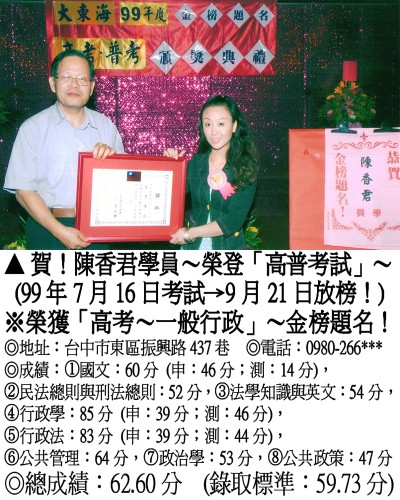 大東海 99年度 金榜題名
高考‧普考 頒獎典禮
恭賀
陳香君
學員
金榜題名！
▲賀！陳香君學員～榮登「高普考試」～
(99年7月16日考試→9月21日放榜！)
※榮獲「高考～一般行政」～金榜題名！
◎地址：台中市東區振興路437巷 ◎電話：0980-266***
◎成績：①國文：60分 (申：46分；測：14分)，
②民法總則與刑法總則：52分，③法學知識與英文：54分，
④行政學：85分 (申：39分；測：46分)，
⑤行政法：83分 (申：39分；測：44分)，
⑥公共管理：64分，⑦政治學：53分，⑧公共政策：47分
◎總成績：62.60分 (錄取標準：59.73分)